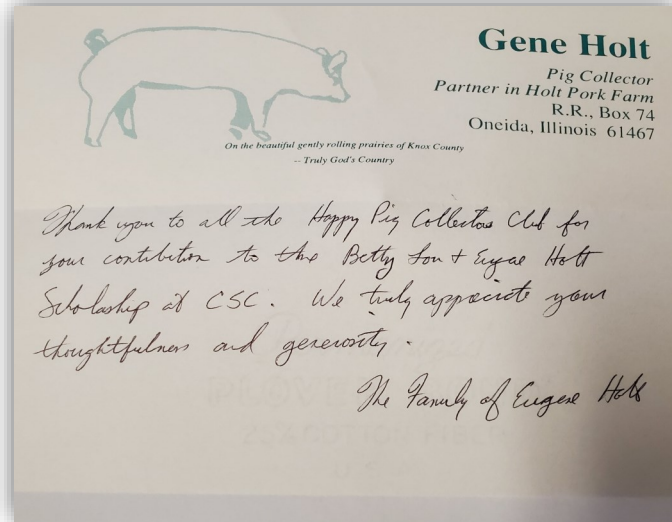 Gene Holt
Pig Collector
Partner in Holt Pork Farm
R.R., Box 74
Oneida, Illinois 61467
On the beautiful gently rolling prairies of Knox County
-- Truly God's Country
Thank you to all the Happy Pig Collectors Club for
your contribution to the Betty Lou + Eugene Holt
Scholarship at CSC. We truly appreciate your
thoughtfulness and generosity.
The Family of Eugene Holt